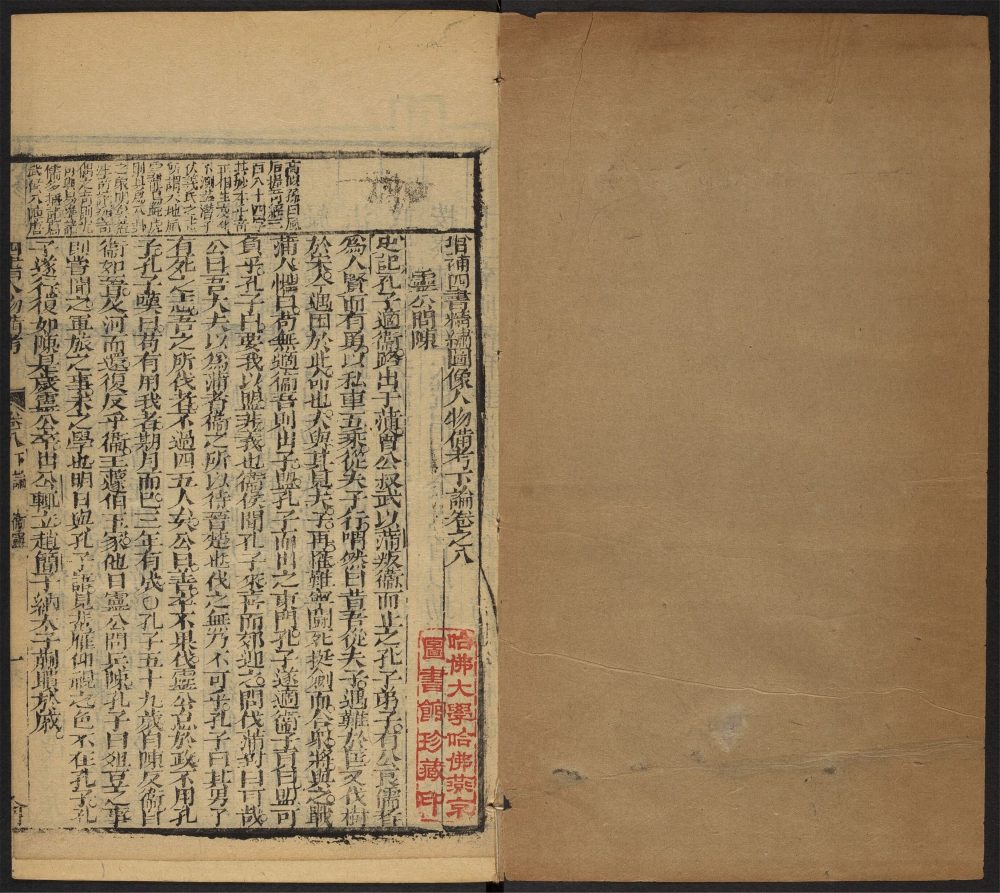 增補四書精繡圖像人物備考下論卷之八
靈公問陳
史記孔子適衛路出于蒲會公叔武以蒲叛衛而止之孔子弟子有公良儒者
為人賢而有勇以私車五乘從夫子行喟然曰昔吾從夫子遇難於匡又伐樹
於宋今遇困於此命也夫與其見夫子再罹難寧鬬死挺劍而合眾將與之戰
蒲人懼曰苟無適衛吾則出子盟孔子而出之東門孔子遂適衛子貢曰盟可
負乎孔子曰要我以盟非義也衛侯聞孔子來喜而郊迎之問伐蒲對曰可哉
公曰吾大夫以為蒲者衛之所以待晉楚也伐之無乃不可乎孔子曰其男子
有死之志吾之所伐者不過四五人矣公曰善卒不果伐靈公怠於政不用孔
子孔子嘆曰苟有用我者期月而已三年有成〇孔子五十九歲自陳反衛自
衛如晉及河而還復反乎衛主蘧伯玉家他日靈公問兵陳孔子曰俎豆之事
則嘗聞之軍旅之事未之學也明日與孔子語見蜚雁仰視之色不在孔子孔
子遂行復如陳是歲靈公卒出公輒立趙簡子納太子蒯聵於戚
百八十四字
四書人物備考
卷八下論
衛靈
一
哈佛大學哈佛燕京
圖書館珍藏印